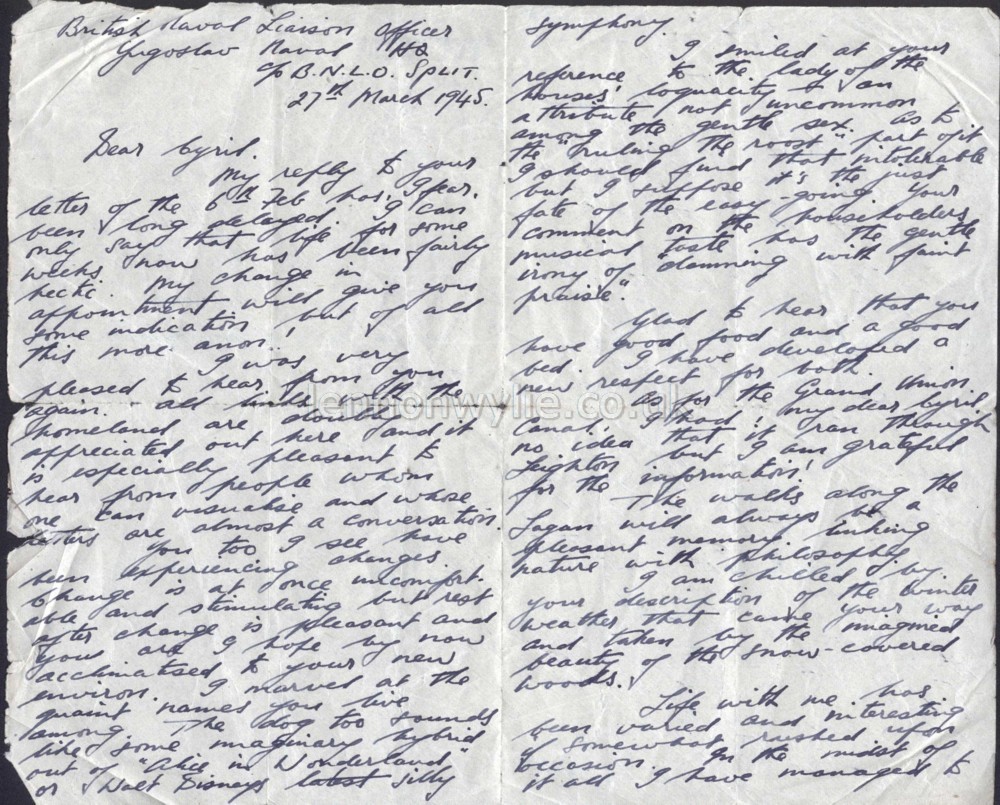 British Naval Liaison Officer
Yugoslav Naval HQ
c/o B.N.L.O. SPLIT.
27th March 1945.
Dear Cyril.
My reply to your
letter of the 6th Feb has, I fear,
been long delayed. I can
only say that life for some
weeks now has been fairly
hectic. My change in
appointment will give you
some indication, but of all
this more anon.
I was very
pleased to hear from you
again. All links with the
homeland are doubly
appreciated out here and it
is especially pleasant to
hear from people whom
one can visualise and whose
letters are almost a conversation.
You too I see have
been experiencing changes.
Change is at once uncomfort-
able and stimulating but rest
after change is pleasant and
you are I hope by now
acclimatised to your new
environ. I marvel at the
quaint names you live
among. The dog too sounds
like some imaginary hybrid
out of "Alice in Wonderland"
or Walt Disney's latest silly
symphony.
I smiled at your
reference to the lady of the
houses' loquacity & an
attribute not uncommon
among the gentle sex. As to
the "ruling the roost" part of it
I should find that intolerable
but I suppose it's the just
fate of the easy-going. Your
comment on the householders
musical "taste" has the gentle
irony of "damning with faint
praise".
Glad to hear that you
have good food and a good
bed. I have developed a
new respect for both.
As for the Grand Union
Canal, I had, my dear Cyril,
no idea that it ran through
Leighton but I am grateful
for the information!
The walks along the
Lagan will always be a
pleasant memory linking
nature with philosophy.
I am chilled by
your description of the winter
weather that came your way
and taken by the imagined
beauty of the snow-covered
woods.
Life with me has
been varied and interesting
if somewhat rushed upon
occasion. In the midst of
it all I have managed to
lennonwylie.co.uk